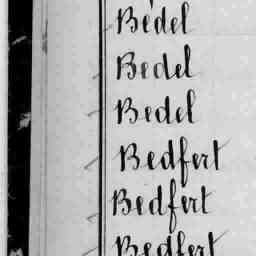 Bedel
Bedel
Bedel
Bedfert
Bedfert
Bedfert